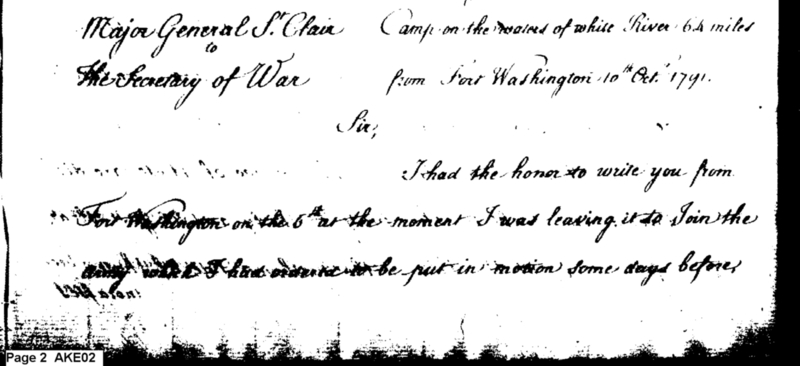 Major General St. Clair
to
The Secretary of War
Camp on the waters of white River 64 miles
from Fort Washington 10th Oct.r 1791.
Sir,
I had the honor to write you from
Fort Washington on the 6th at the moment I was leaving it to Join the
army which I had ordered to be put in motion some days before,
Page 2 AKE02